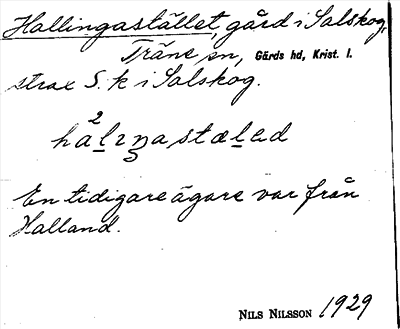 Hallingastället, gård i Salskog,
Träne sn, Gärds hd, Krist. l.
strax S. k i Salskog.
2
halıŋastælεd
En tidigare ägare var från
Halland.
NILS NILSSON 1929